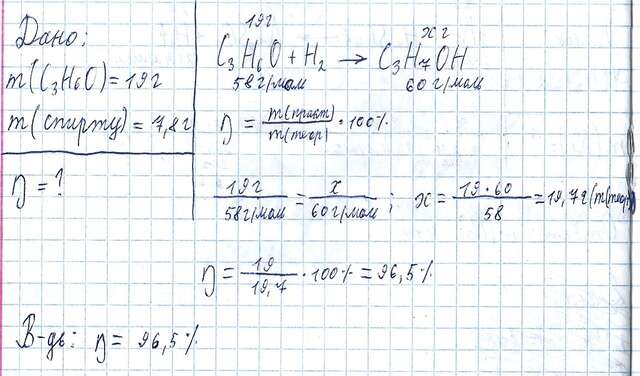 Дано:
m(C₃H₆O)=19г
m(спирту)=7,8г
η=?
19г xг
C₃H₆O+H₂→C₃H₇OH
58г/мол 60г/моль
η=m(практ)/m(теор)·100%
19г/58г/мол=x/60г/мол; x=19·60/58=19,7г(m(теор))
η=19/19,7·100%=96,5%
В-дь: η=96,5%